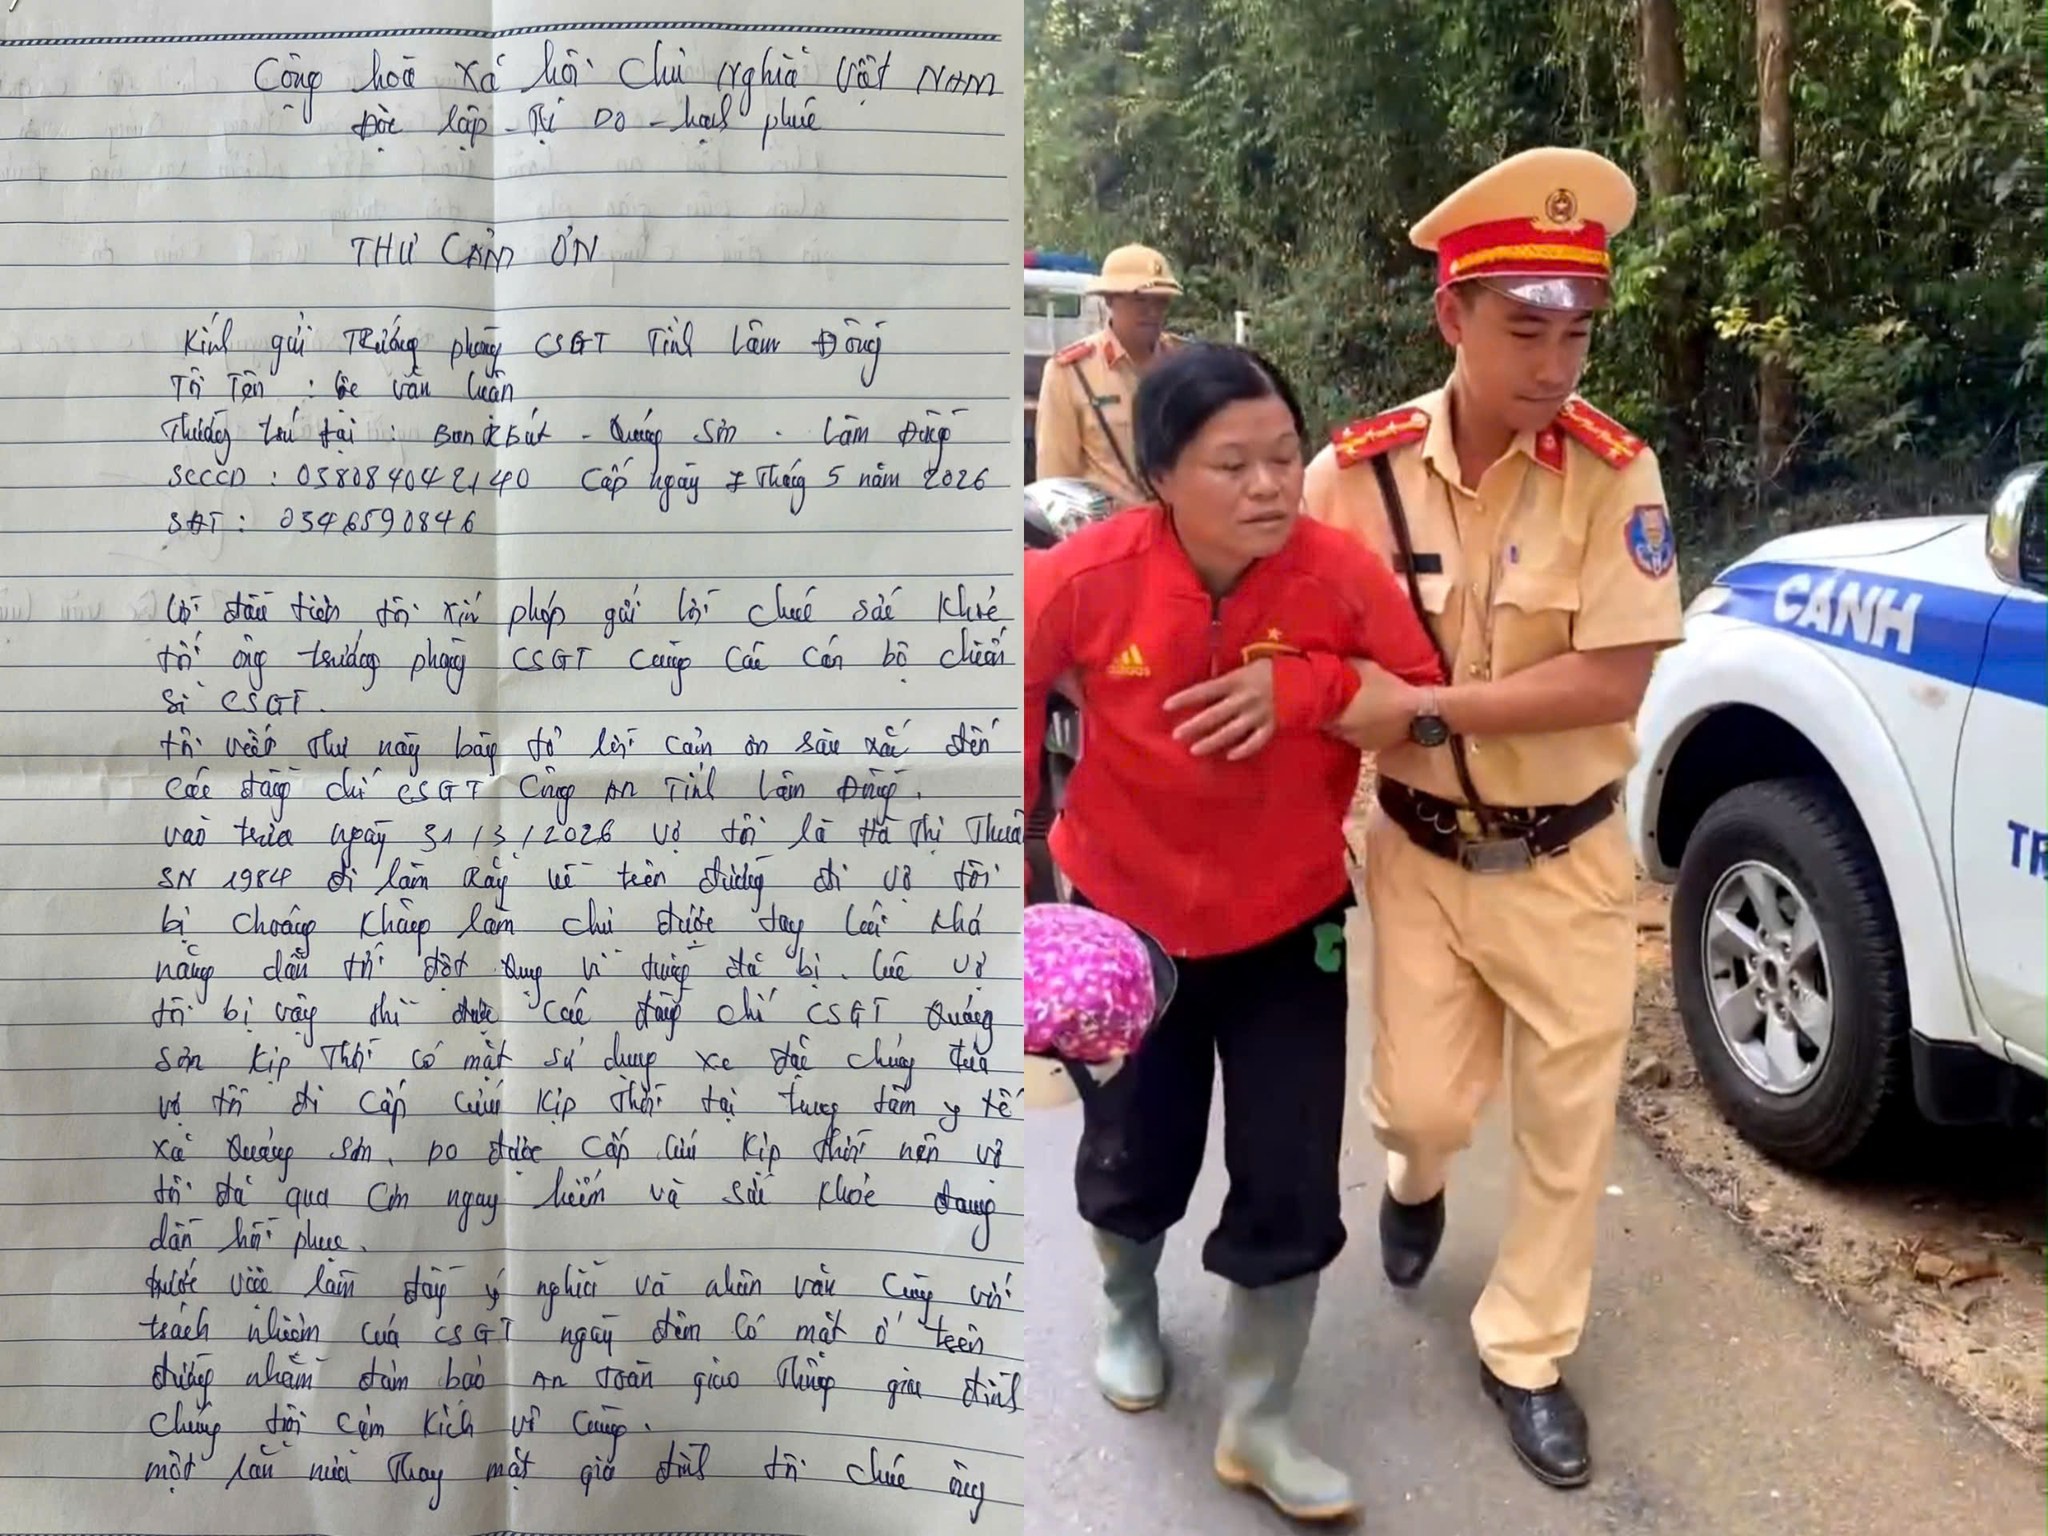 Cộng hoà xã hội chủ nghĩa Việt NAM
Độc lập - Tự Do - hạnh phúc
THƯ CẢM ƠN
Kính gửi Trưởng phòng CSGT Tỉnh Lâm Đồng
Tôi Tên : Lê văn Luân
Thường trú tại : Bon - Quảng Sơn - Lâm Đồng
SCCCD : 038084042140 Cấp ngày 7 Tháng 5 năm 2026
SĐT : 0346590846
Lời đầu tiên tôi xin phép gửi lời chúc sức khoẻ
tới ông trưởng phòng CSGT cùng các cán bộ chiến
sĩ CSGT.
tôi viết Thư này bày tỏ lời cảm ơn sâu sắc đến
các đồng chí CSGT Công An Tỉnh Lâm Đồng.
vào trưa ngày 31/3/2026 vợ tôi là Hà Thị
SN 1984 đi làm Rẫy về trên đường đi vợ tôi
bị choáng không làm chủ được tay lái khả
năng dẫn tới đột quỵ vì từng đã bị. lúc vợ
tôi bị vậy thì được các đồng chí CSGT Quảng
Sơn kịp Thời có mặt sử dụng xe đặc chủng đưa
vợ tôi đi cấp cứu kịp Thời tại trung tâm y tế
xã Quảng Sơn. Do được cấp cứu kịp thời nên vợ
tôi đã qua cơn nguy hiểm và sức khoẻ đang
dần hồi phục.
trước việc làm đầy ý nghĩa và nhân văn cùng với
trách nhiệm của CSGT ngày đêm có mặt ở trên
đường nhằm đảm bảo An toàn giao Thông gia đình
chúng tôi cảm kích vô cùng.
một lần nữa Thay mặt gia đình tôi chúc ông
adidas
CẢNH
TR